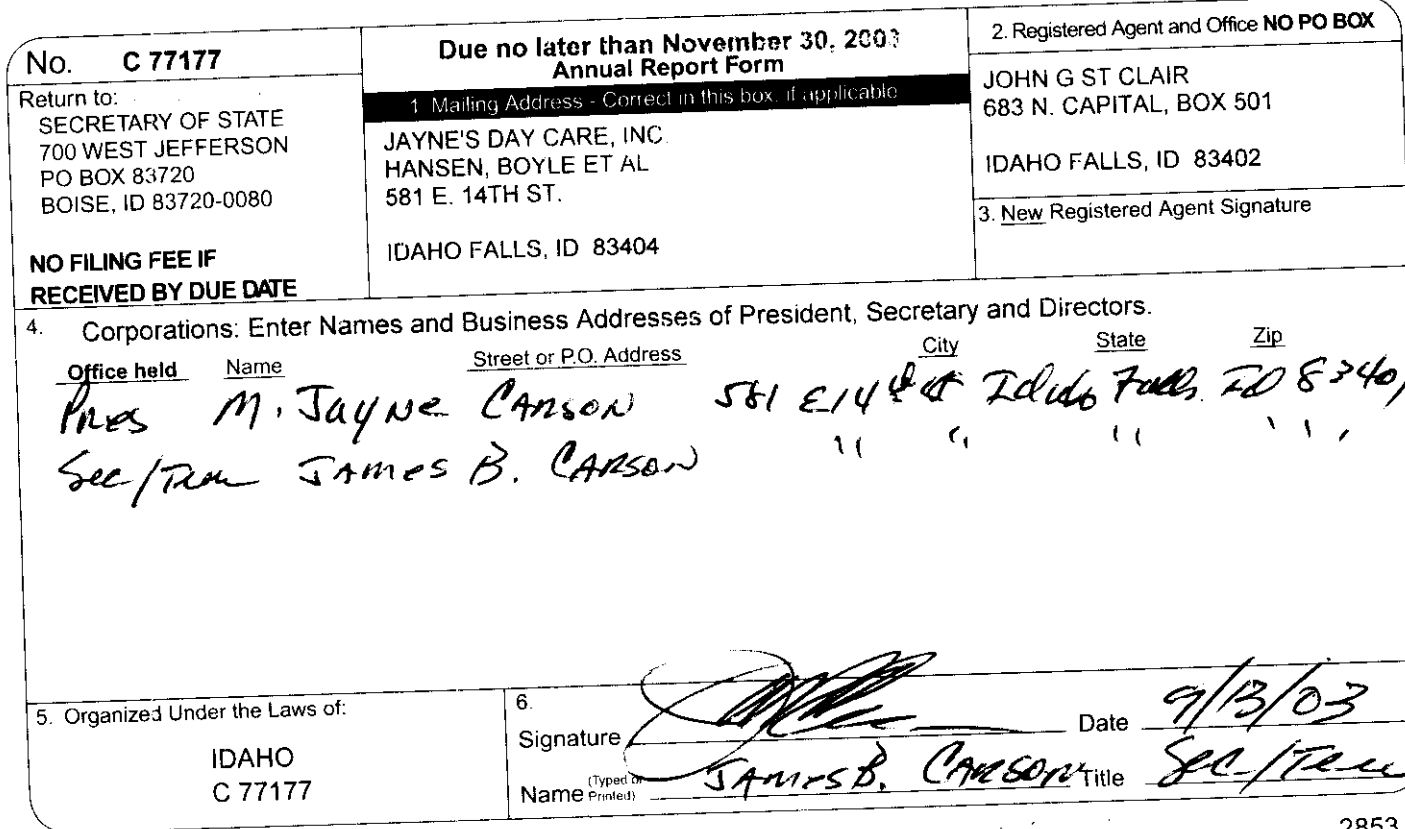 No. C 77177
Return to:
SECRETARY OF STATE
700 WEST JEFFERSON
PO BOX 83720
BOISE, ID 83720-0080
NO FILING FEE IF
RECEIVED BY DUE DATE
Due no later than November 30, 2003
Annual Report Form
1 Mailing Address - Correct in this box, if applicable
JAYNE'S DAY CARE, INC.
HANSEN, BOYLE ET AL
581 E. 14TH ST.
IDAHO FALLS, ID 83404
2. Registered Agent and Office NO PO BOX
JOHN G ST CLAIR
683 N. CAPITAL, BOX 501
IDAHO FALLS, ID 83402
3. New Registered Agent Signature
4. Corporations: Enter Names and Business Addresses of President, Secretary and Directors.
Office held Name Street or P.O. Address City State Zip
Pres M. Jayne CARSON 581 E 14th St Idaho Falls ID 8340
Sec/Trea JAMES B. CARSON " " " "
5. Organized Under the Laws of:
IDAHO
C 77177
6.
Signature Date 9/13/03
Name (Typed or Printed) JAMES B. CARSON Title Sec/Trea
2853